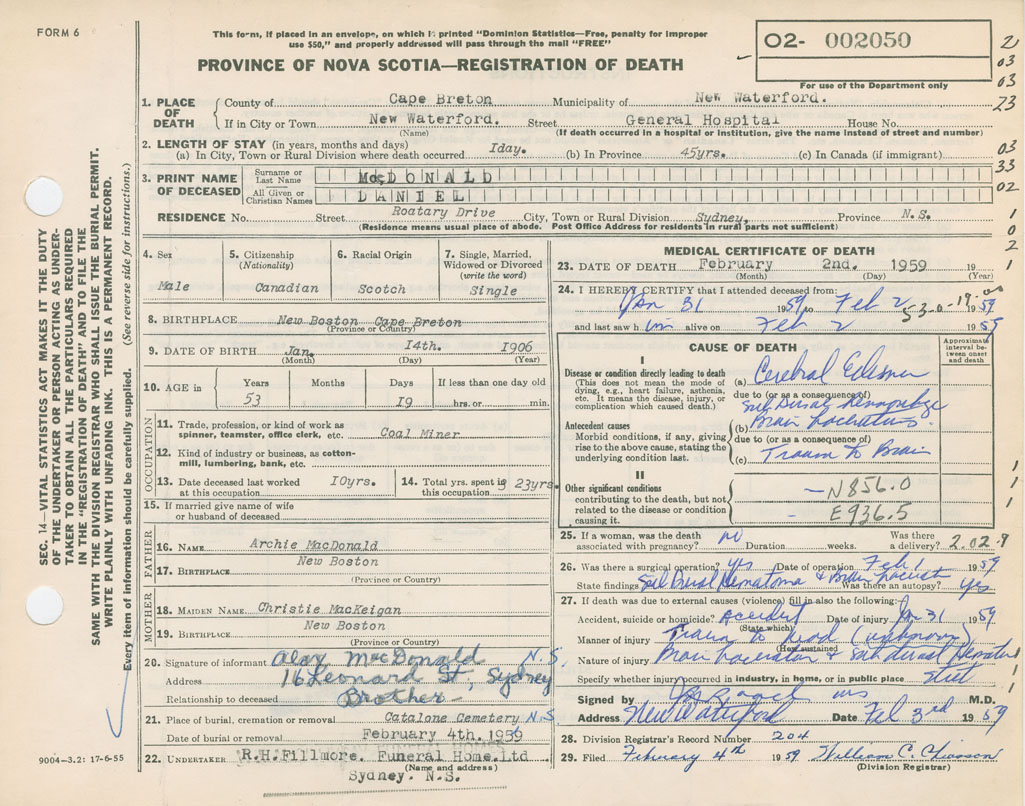 FORM 6
This form, if placed in an envelope, on which is printed "Dominion Statistics—Free, penalty for improper
use $50," and properly addressed will pass through the mail "FREE"
PROVINCE OF NOVA SCOTIA—REGISTRATION OF DEATH
02- 002050
For use of the Department only
2
03
03
23
03
33
02
1
0
2
1
1. PLACE OF DEATH
County of Cape Breton Municipality of New Waterford.
If in City or Town New Waterford. Street General Hospital House No.
(Name) (If death occurred in a hospital or institution, give the name instead of street and number)
2. LENGTH OF STAY (in years, months and days)
(a) In City, Town or Rural Division where death occurred 1day. (b) In Province 45yrs. (c) In Canada (if immigrant)
3. PRINT NAME OF DECEASED
Surname or Last Name MacDONALD
All Given or Christian Names DANIEL
RESIDENCE No. Street Roatary Drive City, Town or Rural Division Sydney, Province N.S.
(Residence means usual place of abode. Post Office Address for residents in rural parts not sufficient)
4. Sex
Male
5. Citizenship (Nationality)
Canadian
6. Racial Origin
Scotch
7. Single, Married, Widowed or Divorced (write the word)
Single
8. BIRTHPLACE New Boston Cape Breton
(Province or Country)
9. DATE OF BIRTH Jan. 14th. 1906
(Month) (Day) (Year)
10. AGE in
Years Months Days If less than one day old
53 19 hrs. or min.
OCCUPATION
11. Trade, profession, or kind of work as
spinner, teamster, office clerk, etc. Coal Miner
12. Kind of industry or business, as cotton-
mill, lumbering, bank, etc.
13. Date deceased last worked
at this occupation 10yrs.
14. Total yrs. spent in
this occupation 23yrs.
15. If married give name of wife
or husband of deceased
FATHER
16. NAME Archie MacDonald
17. BIRTHPLACE New Boston
(Province or Country)
MOTHER
18. MAIDEN NAME Christie MacKeigan
19. BIRTHPLACE New Boston
(Province or Country)
20. Signature of informant Alex MacDonald N.S.
Address 16 Leonard St, Sydney
Relationship to deceased Brother
21. Place of burial, cremation or removal Catalone Cemetery N.S
Date of burial or removal February 4th. 1959
22. UNDERTAKER R.H.Fillmore. Funeral Home.Ltd
(Name and address)
Sydney. N.S.
MEDICAL CERTIFICATE OF DEATH
23. DATE OF DEATH February 2nd. 1959 19
(Month) (Day) (Year)
24. I HEREBY CERTIFY that I attended deceased from:
Jan 31 1959 to Feb 2 1959
53-0-19-00
and last saw h im alive on Feb 2 1959
CAUSE OF DEATH
Approximate interval between onset and death
I
Disease or condition directly leading to death
(This does not mean the mode of
dying, e.g., heart failure, asthenia,
etc. It means the disease, injury, or
complication which caused death.)
(a) Cerebral Edema
due to (or as a consequence of)
Sub Dural Hemorrhage
(b) Brain Laceration
due to (or as a consequence of)
(c) Trauma to Brain
Antecedent causes
Morbid conditions, if any, giving
rise to the above cause, stating the
underlying condition last.
II
Other significant conditions
contributing to the death, but not
related to the disease or condition
causing it.
N856.0
E936.5
25. If a woman, was the death
associated with pregnancy? no Duration weeks. Was there
a delivery? 2.02.9
26. Was there a surgical operation? yes Date of operation Feb 1 1959
State findings Sub Dural Hematoma & Brain Was there an autopsy? yes
27. If death was due to external causes (violence) fill in also the following:
Accident, suicide or homicide? Accident Date of injury Jan 31 1959
(State which)
Manner of injury Trauma to head (unknown)
(How sustained)
Nature of injury Brain Laceration & Subdural Hematoma
Specify whether injury occurred in industry, in home, or in public place Street
Signed by M.D.
Address New Waterford Date Feb 3rd 1959
28. Division Registrar's Record Number 204
29. Filed February 4th 1959 William C
(Division Registrar)
1
1
1
1
1
1
SEC. 14—VITAL STATISTICS ACT MAKES IT THE DUTY
OF THE UNDERTAKER OR PERSON ACTING AS UNDER-
TAKER TO OBTAIN ALL THE PARTICULARS REQUIRED
IN THE "REGISTRATION OF DEATH" AND TO FILE THE
SAME WITH THE DIVISION REGISTRAR WHO SHALL ISSUE THE BURIAL PERMIT.
WRITE PLAINLY WITH UNFADING INK. THIS IS A PERMANENT RECORD.
Every item of information should be carefully supplied. (See reverse side for instructions.)
9004-3.2: 17-6-55